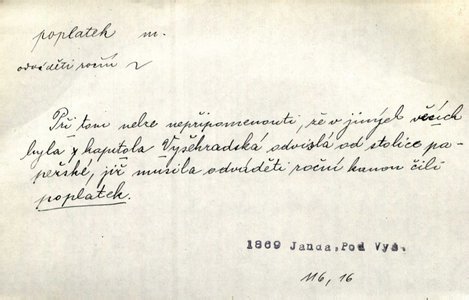 poplatek m.
odváděti roční ~
Při tom nelze nepřipomenouti, že v jiných věcích
byla kapitola Vyšehradská odvislá od stolice pa-
pežské, jíž musila odváděti roční kanon čili
poplatek.
1869 Janda, Pod Vyš.
116, 16